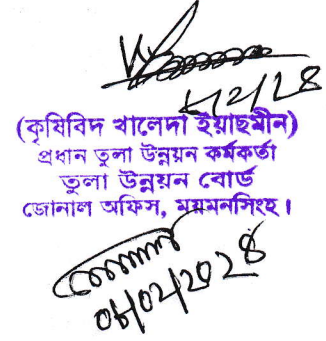 ৮/২/২৪
(কৃষিবিদ খালেদা ইয়াছমীন)
প্রধান তুলা উন্নয়ন কর্মকর্তা
তুলা উন্নয়ন বোর্ড
জোনাল অফিস, ময়মনসিংহ।
০৮/০২/২০২৪